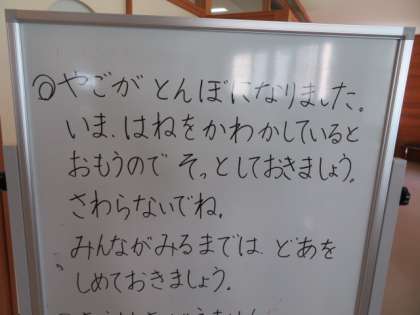 ○やごが とんぼになりました。
いま、はねをかわかしていると
おもうので そっとしておきましょう。
さわらないでね。
みんながみるまでは、どあを
しめておきましょう。